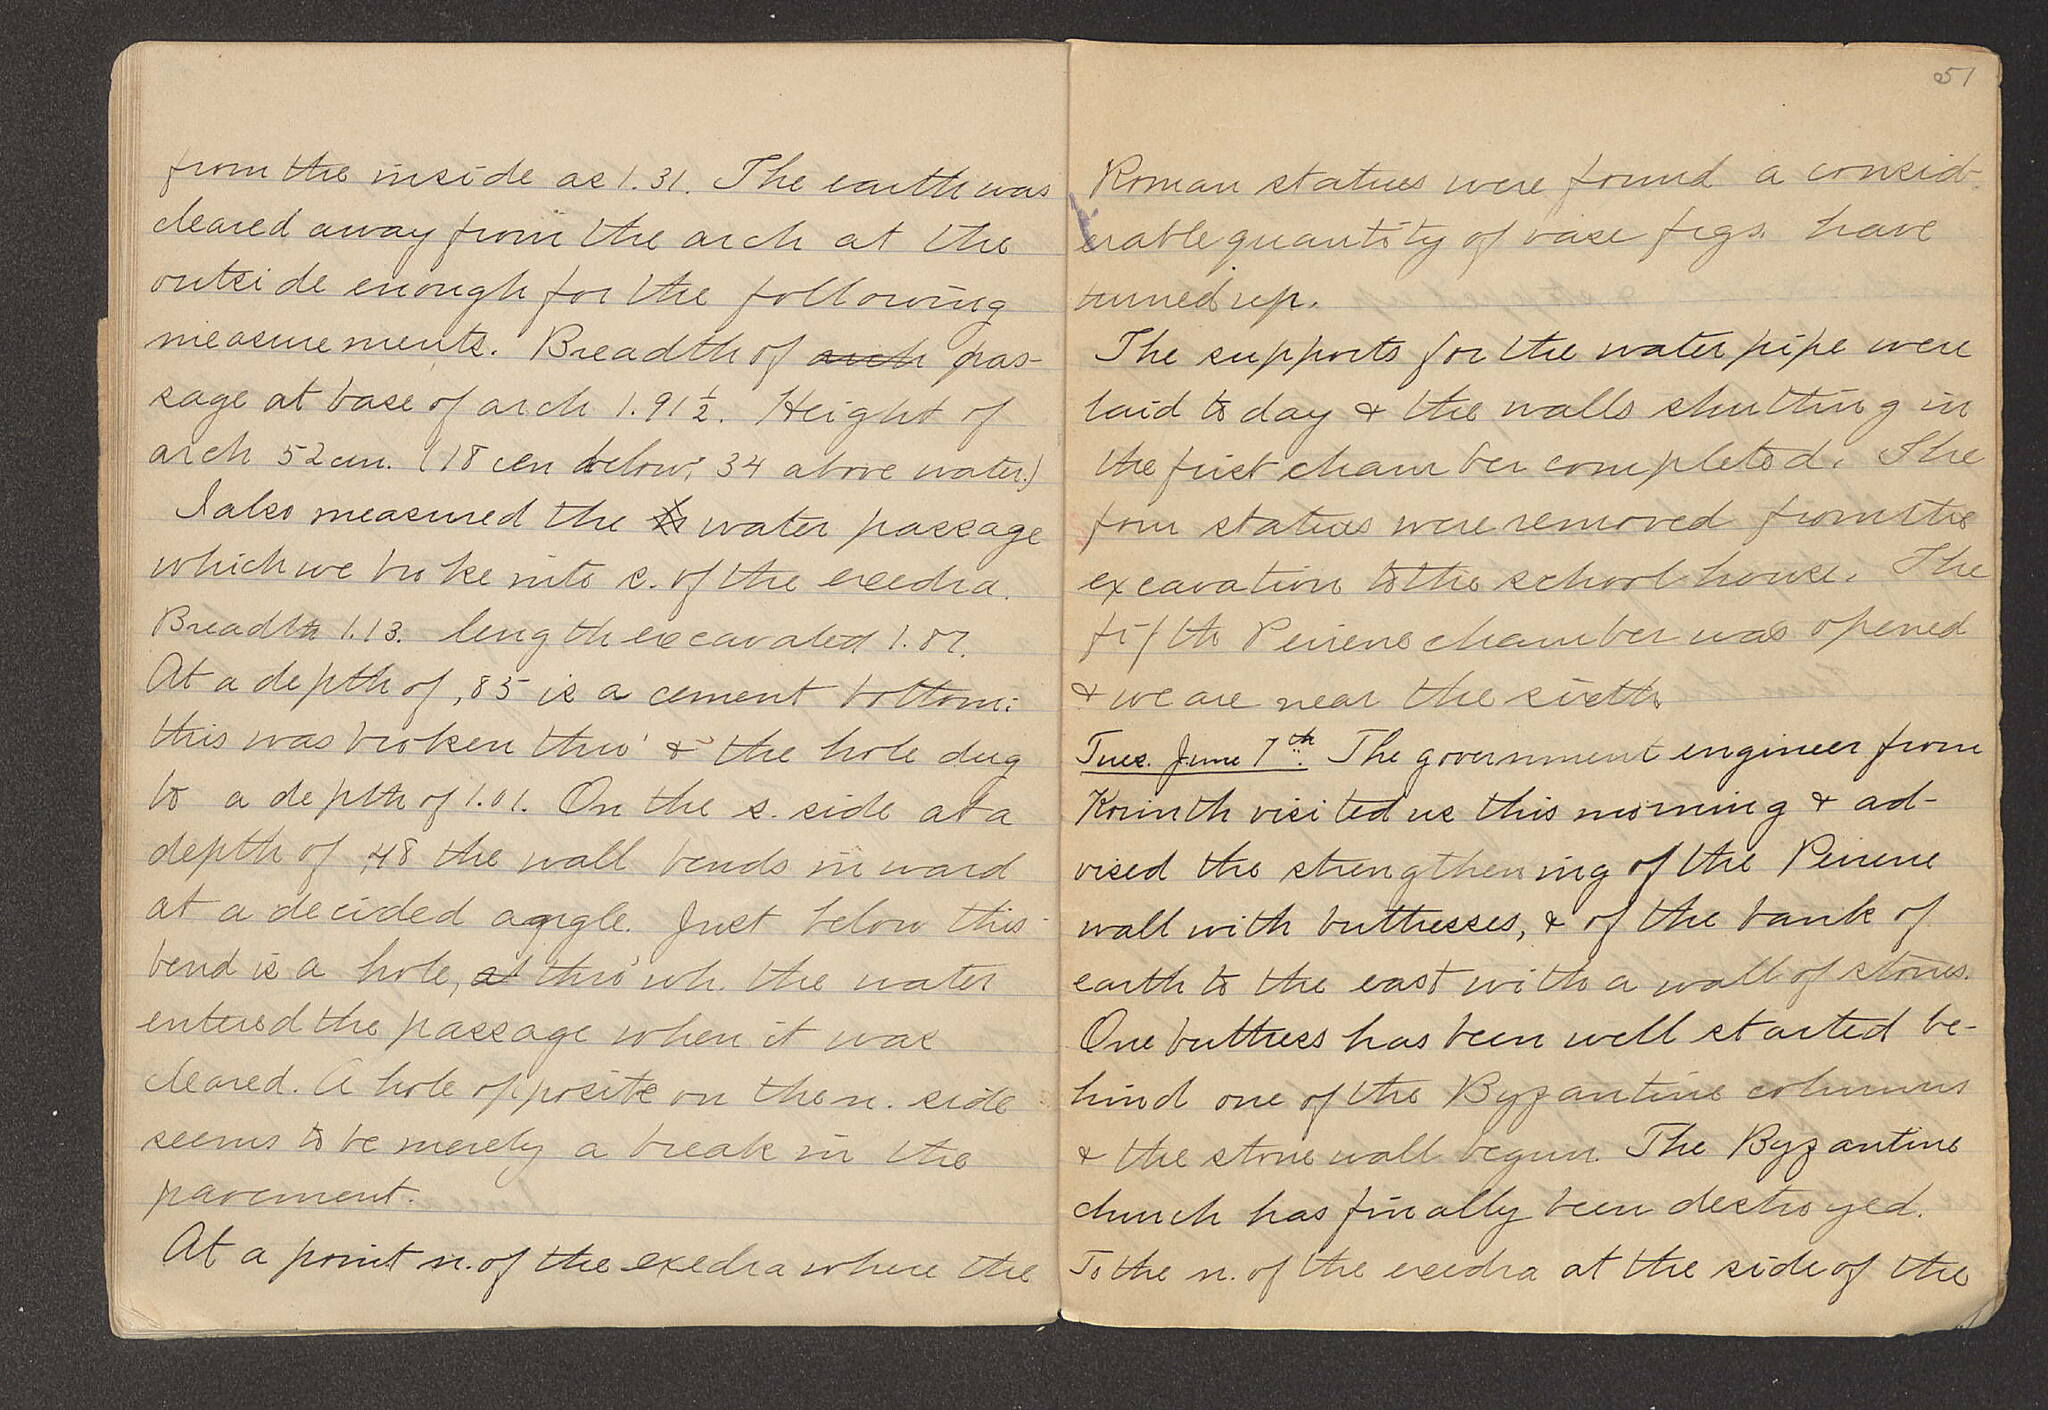 from the inside as 1.31. The earth was
cleared away from the arch at the
outside enough for the following
measurements. Breadth of arch pas-
sage at base of arch 1.91½. Height of
arch 52 cm. (18 cen below; 34 above water.)
I also measured the water passage
which we broke into s. of the exedra.
Breadth 1.13. length excavated 1.87.
At a depth of ,85 is a cement bottom:
this was broken thro' & the hole dug
to a depth of 1.01. On the s. side at a
depth of ,48 the wall bends inward
at a decided angle. Just below this
bend is a hole, at thro' wh. the water
entered the passage when it was
cleared. A hole opposite on the n. side
seems to be merely a break in the
pavement.
At a point n. of the exedra where the
51
Roman statues were found a consid-
erable quantity of vase figs. have
turned up.
The supports for the water pipe were
laid to day & the walls shutting in
the first chamber completed. The
four statues were removed from the
excavation to the school house. The
fifth Peirene chamber was opened
& we are near the sixth.
Tues. June 7th. The government engineer from
Korinth visited us this morning & ad-
vised the strengthening of the Peirene
wall with buttresses, & of the bank of
earth to the east with a wall of stones.
One buttress has been well started be-
hind one of the Byzantine columns
& the stone wall begun. The Byzantine
church has finally been destroyed.
To the n. of the exedra at the side of the